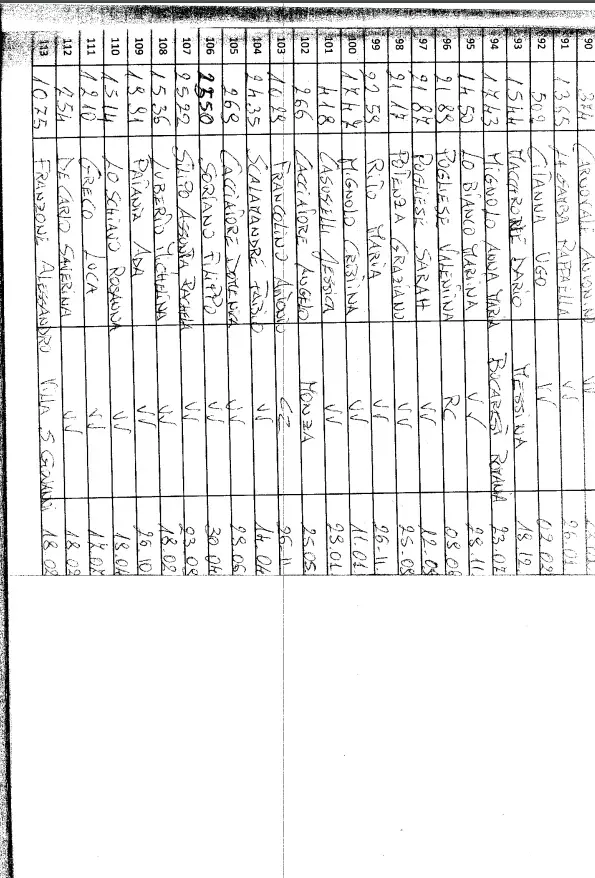 90 374 CARNOVALE ANTONINO VV
91 1365 LA GAMBA RAFFAELLA VV 26.01
92 509 GIANNA UGO VV 02.02
93 1544 MACCARRONE DARIO MESSINA 18.12
94 1743 MIGNOLO ANNA MARIA BUCAREST ROMANIA 23.07
95 1450 LO BIANCO MARINA VV 28.11
96 2188 PUGLIESE VALENTINA RC
97 2187 PUGLIESE SARAH VV
98 2117 POTENZA GRAZIANO VV
99 2258 RIILO MARIA VV 26-11
100 1747 MIGNOLO CRISTINA VV 11.01
101 418 CASUSELLI JESSICA VV 28.01
102 266 CACCIATORE ANGELO MONZA 25.05
103 1029 FRANCOLINO ANTONIO CZ 26-11
104 2435 SCALAMANDRE FABIO VV 14.04
105 268 CACCIATORE DOMENICA VV 28.06
106 2550 SORIANO FILIPPO VV 30.04
107 2522 SILIPO ASSUNTA RACHELA VV
108 1536 LUBERTO MICHELINA VV 18.02
109 1891 PAIANA ADA VV 26.10
110 1514 LO SCHIAVO ROSANNA VV 18.04
111 1210 GRECO LUCA VV
112 754 DE CARLO SAVERINA VV 18.02
113 1075 FRANZONE ALESSANDRO VILLA S GIOVANNI